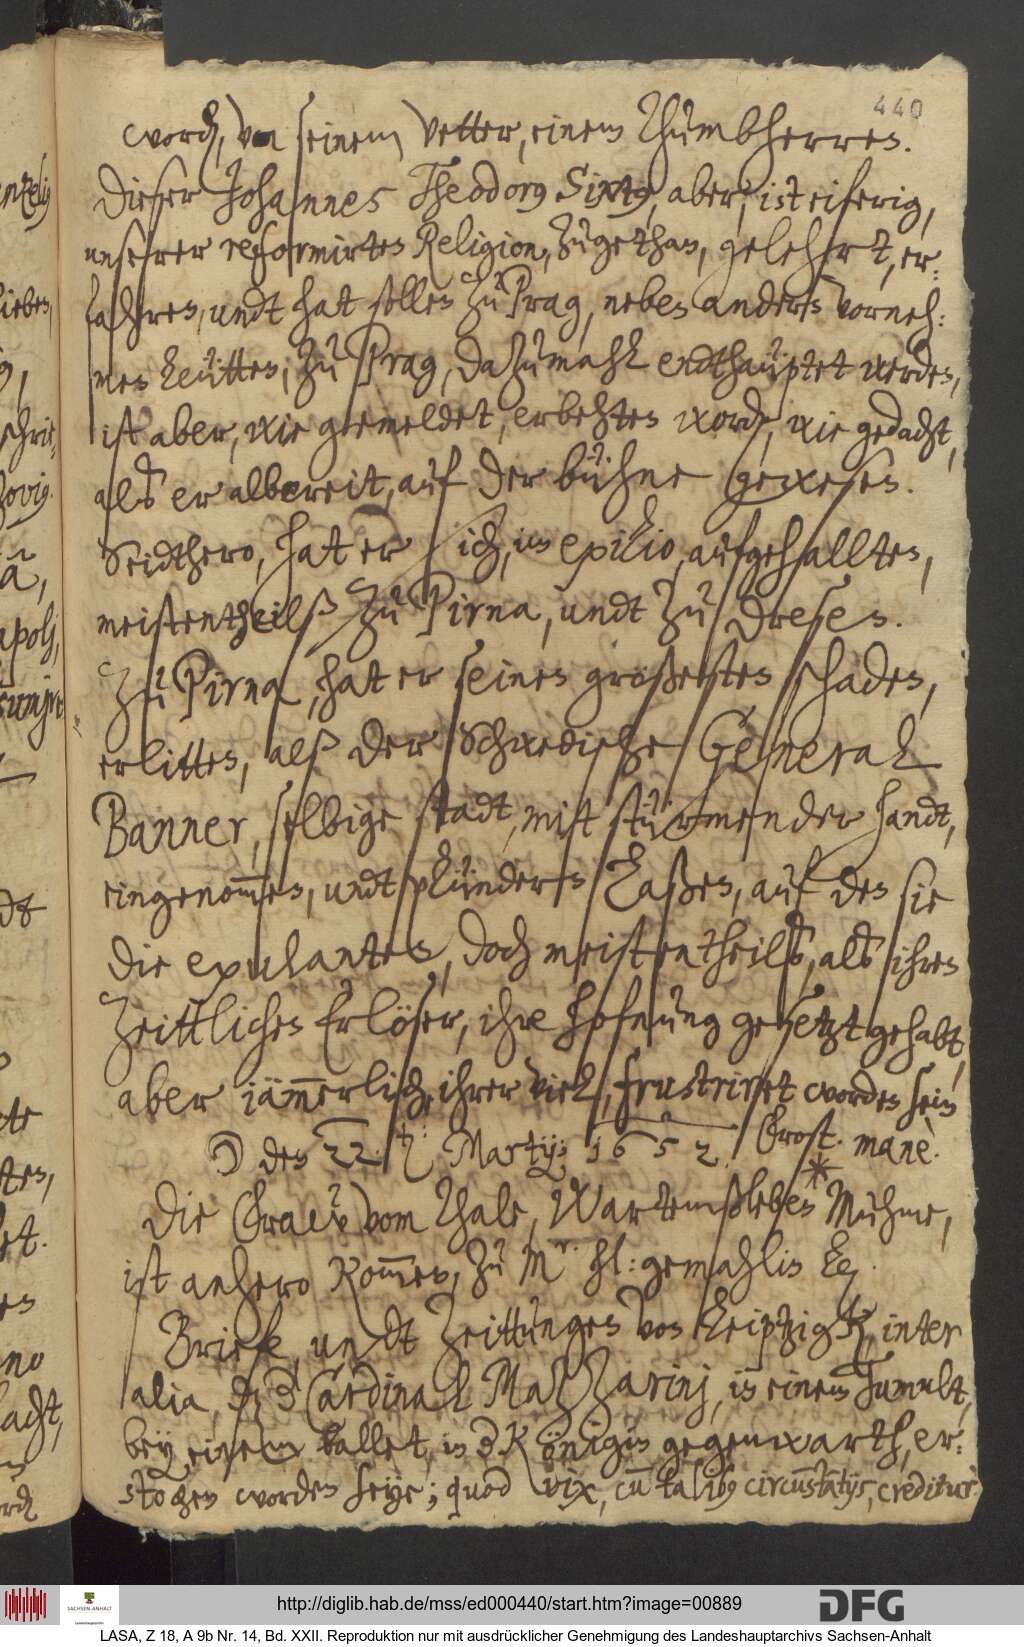 440
word(en), von seinem Vetter, einem Thumbherren.
Dieser Johannes Theodorus Sixtus, aber, ist eiferig,
unserer reformirten Religion, zugethan, gelehrt, er-
fahren, undt hat sollen zu Prag, neben andern vorneh-
men Leütten, zu Prag, dazumahl endthaüptet werden,
ist aber, wie gemeldet, erbehten word(en), wie gedacht,
alß er albereit, auf der bühne gewesen.
Seidthero, hat er sich, in exilio, aufgehallten,
meistentheilß zu Pirna, undt zu Dresen.
Zu Pirna, hat er seinen größesten schaden,
erlitten, alß der Schwedische General
Banner, selbige stadt, mitt stürmender handt,
eingenom̄en, undt plündern laßen, auf den sie
die exulanten, doch meistentheilß, alß ihren
zeittlichen Erlöser, ihre hofnung gesetzt gehabt,
aber jäm̄erlich, ihrer viel, frustriret worden sein
☽ den 22. Martij: 1652. Grost. manè.
Die Fraw vom Thale, Wartemßleben * Muhme,
ist anhero kom̄en, zu Mr. hl: gemahlin
Briefe, undt Zeittungen von Leiptzig inter
alia, Cardinal Mazzarinj, in einem Tumult,
bey einem ballet, in d(er) Königin gegenwarth, er-
stochen worden seye; quod vix, cū talibus circūstātijs, creditur.
http://diglib.hab.de/mss/ed000440/start.htm?image=00889
SACHSEN-ANHALT
Landeshauptarchiv
DFG
LASA, Z 18, A 9b Nr. 14, Bd. XXII. Reproduktion nur mit ausdrücklicher Genehmigung des Landeshauptarchivs Sachsen-Anhalt